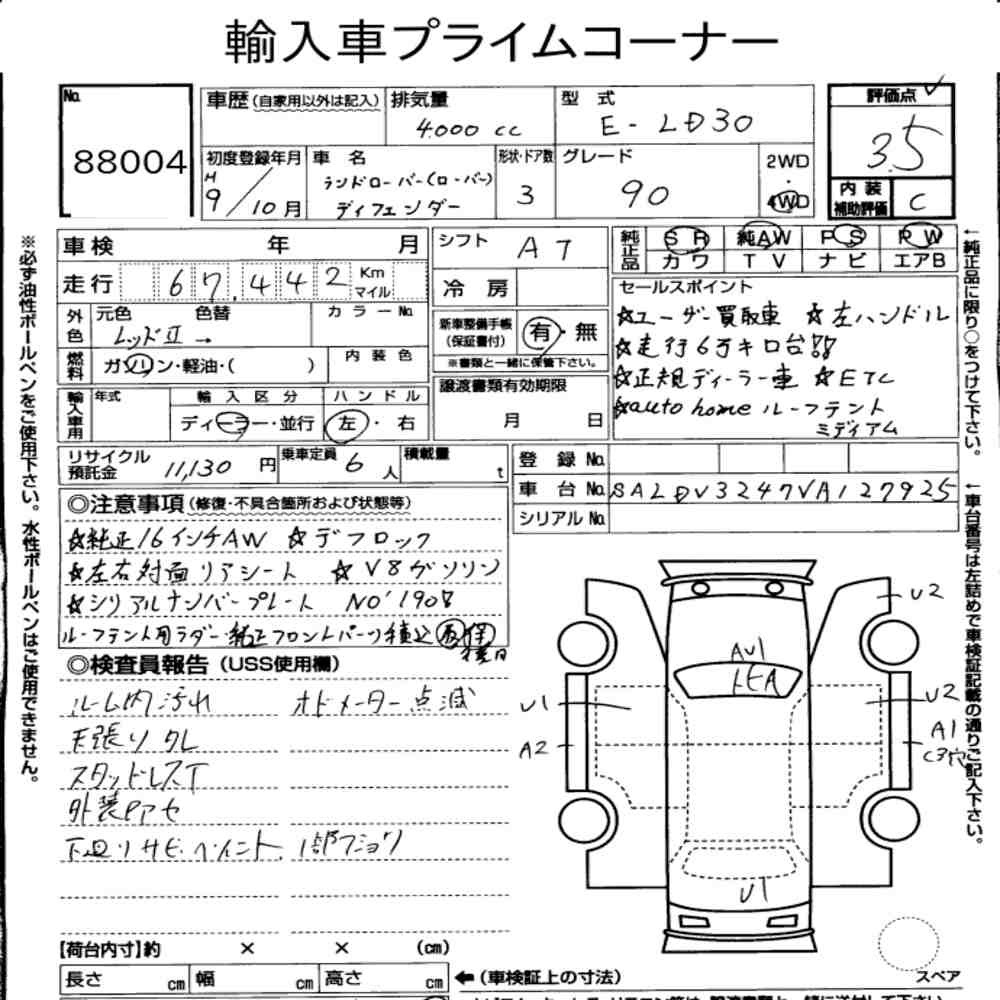 輸入車プライムコーナー
No.
88004
車歴(自家用以外は記入)
排気量
4.000 cc
型 式
E-LD30
評価点
3.5
初度登録年月
H
9/10月
車 名
ランドローバー(ローバー)
ディフェンダー
形状・ドア数
3
グレード
90
2WD
・
4WD
内装
補助評価
C
※必ず油性ボールペンをご使用下さい。水性ボールペンはご使用できません。
車検 年 月
走行 67.442 Km
マイル
外色
元色 色替
レッドⅡ →
カラーNo.
燃料
ガソリン・軽油・( )
内装色
輸入車用
年式
輸入区分
ディーラー・並行
ハンドル
左・右
シフト
AT
冷房
新車整備手帳
(保証書付)
有・無
※書類と一緒に保管下さい。
譲渡書類有効期限
月 日
純正品
SR 純AW PS PW
カワ TV ナビ エアB
セールスポイント
☆ユーザー買取車 ☆左ハンドル
☆走行6万キロ台!!
☆正規ディーラー車 ☆ETC
☆auto home ルーフテント
ミディアム
←純正品に限り○をつけて下さい。
リサイクル
預託金
11,130 円
乗車定員
6 人
積載量
t
登録No.
車台No. SALDV3247VA127925
シリアルNo.
←車台番号は左詰めで車検証記載の通りご記入下さい。
◎注意事項(修復・不具合箇所および状態等)
☆純正16インチAW ☆デフロック
☆左右対面リアシート ☆V8ガソリン
☆シリアルナンバープレート NO'1908
ルーフテント用ラダー・純正フロントパーツ積込
後日
◎検査員報告(USS使用欄)
ルーム内汚れ オドメーター点滅
天張りタレ
スタッドレスT
外装Pアセ
下廻りサビ・ペイント、1部フショク
U2
AU1
トビA
U1
U2
A2
A1
U1
【荷台内寸】約 × × (cm)
長さ cm 幅 cm 高さ cm
←(車検証上の寸法)
スペア